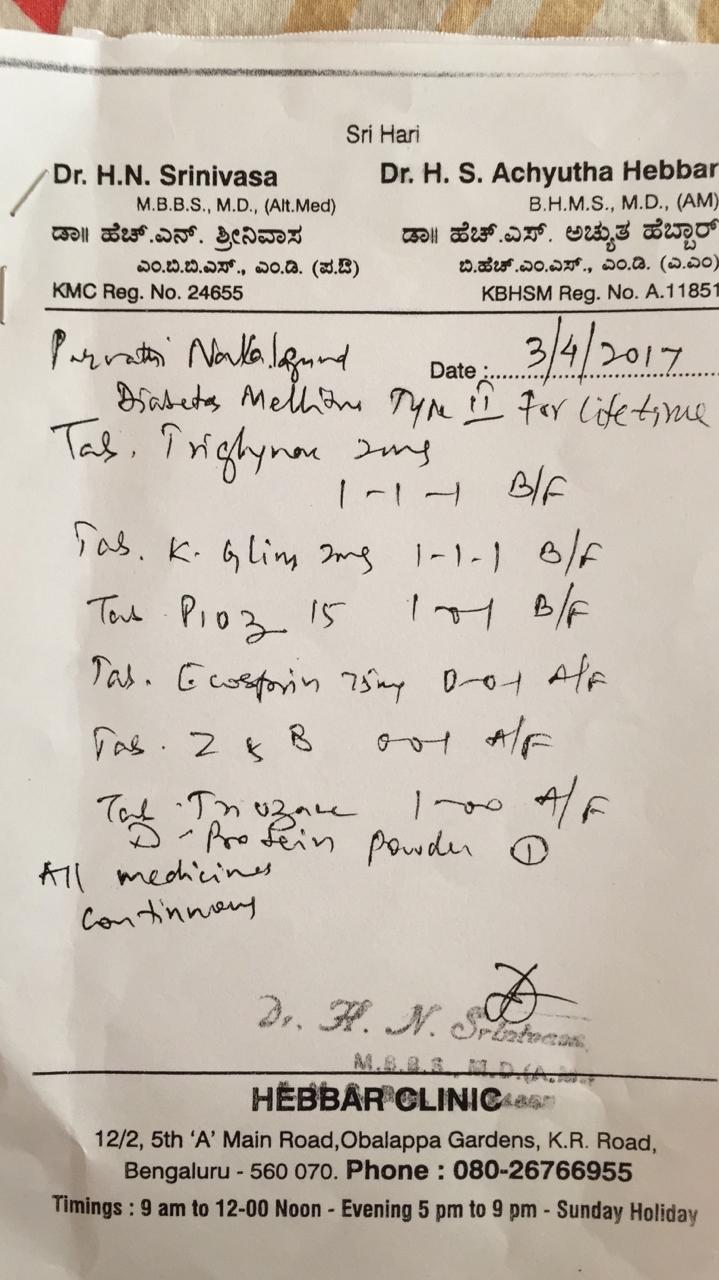 Sri Hari
Dr. H.N. Srinivasa
M.B.B.S., M.D., (Alt.Med)
ಡಾ॥ ಹೆಚ್.ಎನ್. ಶ್ರೀನಿವಾಸ
ಎಂ.ಬಿ.ಬಿ.ಎಸ್., ಎಂ.ಡಿ. (ಪ.ಔ)
KMC Reg. No. 24655
Dr. H. S. Achyutha Hebbar
B.H.M.S., M.D., (AM)
ಡಾ॥ ಹೆಚ್.ಎಸ್. ಅಚ್ಯುತ ಹೆಬ್ಬಾರ್
ಬಿ.ಹೆಚ್.ಎಂ.ಎಸ್., ಎಂ.ಡಿ. (ಎ.ಎಂ)
KBHSM Reg. No. A.11851
Parvathi
Date : 3/4/2017
Diabetes Mellitus Type II For Lifetime
Tab. 2mg
1-1-1 B/F
Tab. K. Glim 2mg 1-1-1 B/F
Tab Pioz 15 1-0-1 B/F
Tab. Ecosprin 75mg 0-0-1 A/F
Tab. Z & B 0-0-1 A/F
Tab. 1-0-0 A/F
D-Protein Powder ①
All medicines
continuous
Dr. H. N. Srinivasa
M.B.B.S., M.D.(A.M.)
HEBBAR CLINIC
12/2, 5th 'A' Main Road,Obalappa Gardens, K.R. Road,
Bengaluru - 560 070. Phone : 080-26766955
Timings : 9 am to 12-00 Noon - Evening 5 pm to 9 pm - Sunday Holiday